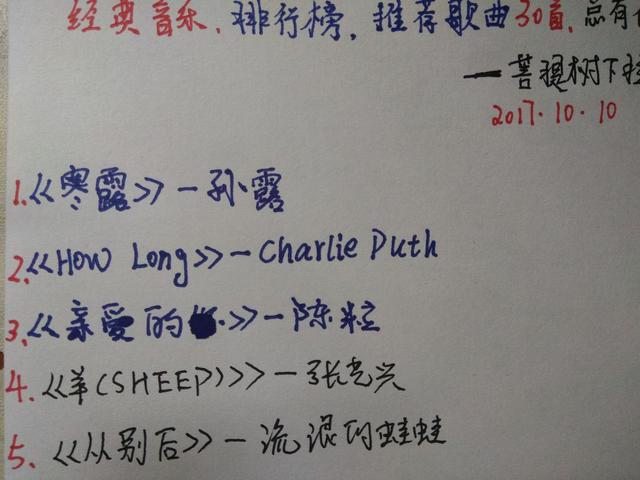 经典音乐,排行榜,推荐歌曲30首,总有
—菩提树下
2017.10.10
1.《寒露》—孙露
2.《How Long》—Charlie Puth
3.《亲爱的.》—陈粒
4.《羊(SHEEP)》—张艺兴
5.《从别后》—流浪的蛙蛙